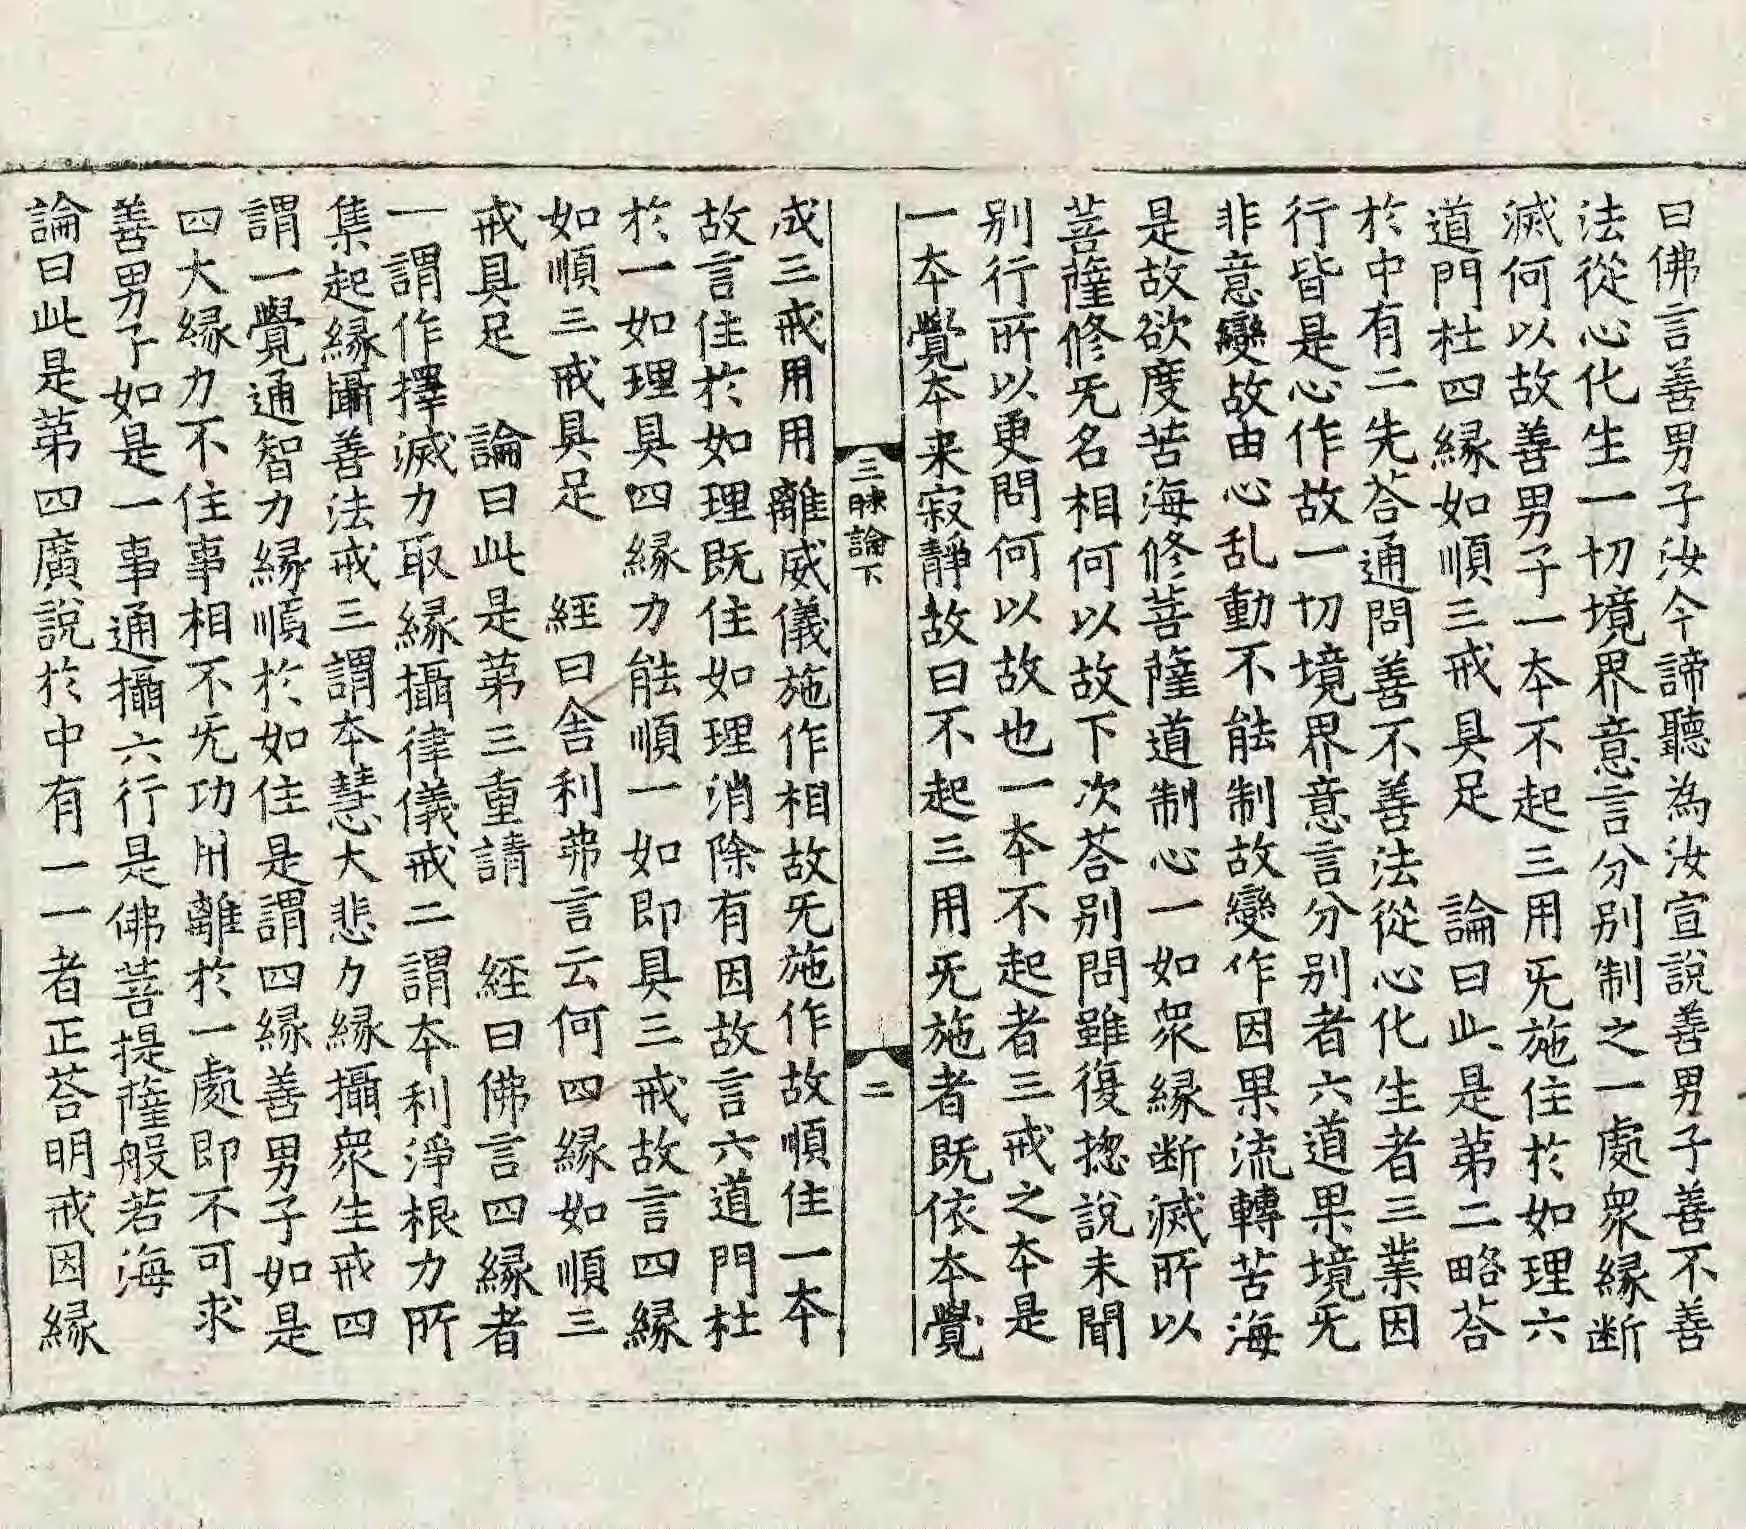 曰佛言善男子汝今諦聽為汝宣說善男子善不善
法從心化生一切境界意言分別制之一處眾緣断
滅何以故善男子一本不起三用旡施住於如理六
道門杜四縁如順三戒具足　論曰此是苐二略荅
於中有二先荅通問善不善法從心化生者三業因
行皆是心作故一切境界意言分別者六道果境旡
非意變故由心乱動不能制故變作因果流轉苦海
是故欲度苦海修菩薩道制心一如眾縁断滅所以
菩薩修旡名相何以故下次荅別問雖復揔說未聞
別行所以更問何以故也一本不起者三戒之本是
一本覺本来寂靜故曰不起三用旡施者既依本覺
三昧論下　二
成三戒用用離威儀施作相故旡施作故順住一本
故言住於如理既住如理消除有因故言六道門杜
於一如理具四縁力能順一如即具三戒故言四縁
如順三戒具足　経曰舍利弗言云何四縁如順三
戒具足　論曰此是苐三重請　経曰佛言四縁者
一謂作擇滅力取縁攝律儀戒二謂本利淨根力所
集起縁攝善法戒三謂本慧大悲力縁攝眾生戒四
謂一覺通智力縁順於如住是謂四縁善男子如是
四大縁力不住事相不旡功用離於一處即不可求
善男子如是一事通攝六行是佛菩提薩般若海
論曰此是苐四廣說於中有一一者正荅明戒因縁